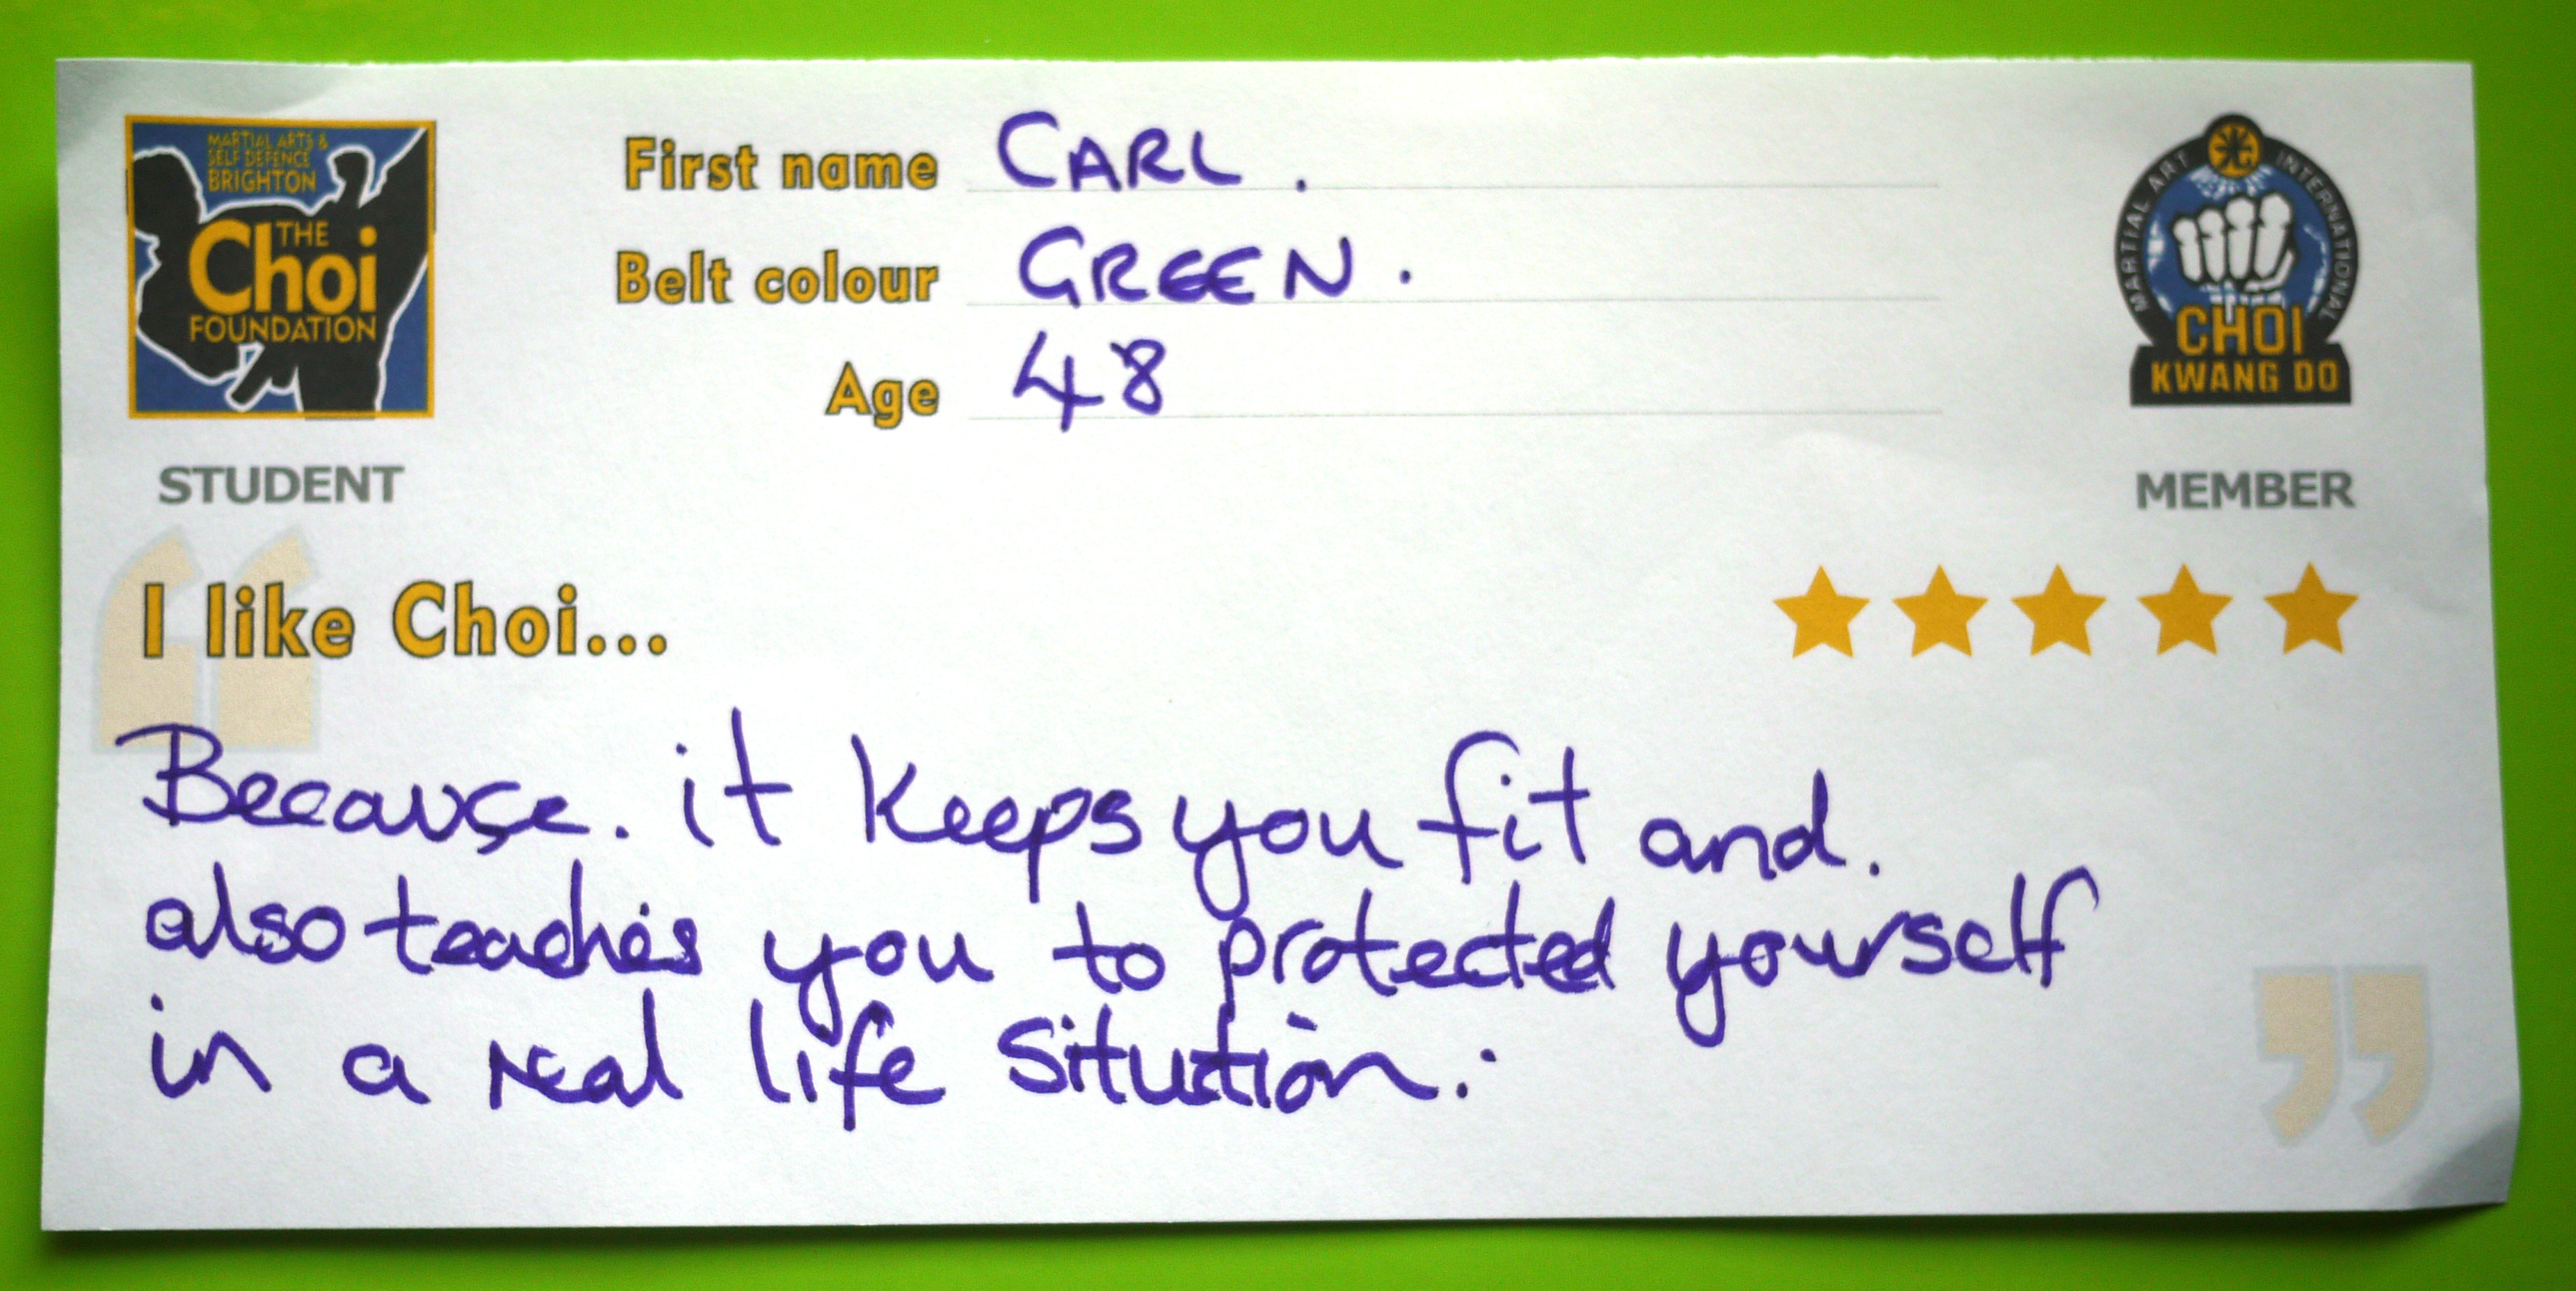 MARTIAL ARTS &
SELF DEFENCE
BRIGHTON
THE
Choi
FOUNDATION
STUDENT
First name CARL.
Belt colour GREEN.
Age 48
MARTIAL ART INTERNATIONAL
CHOI
KWANG DO
MEMBER
I like Choi...
Because. it keeps you fit and.
also teaches you to protected yourself
in a real life situtation.